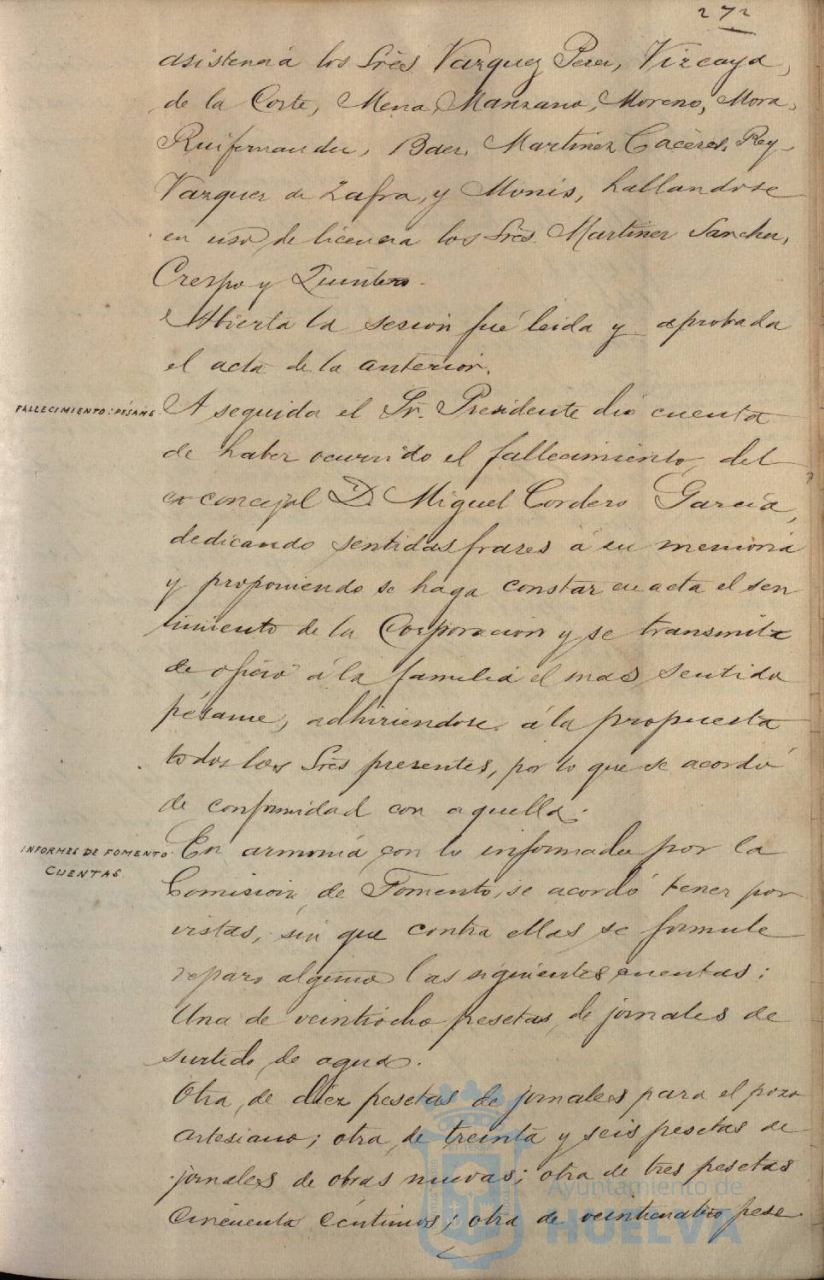 272
asistencia los Sres Vazquez Perez, Vizcaya,
de la Corte, Mena, Manzano, Moreno, Mora,
Ruifernandez, Baez, Martinez Caceres, Rey,
Vazquez de Zafra, y Monis, hallandose
en uso de licencia los Sres. Martinez Sanchez,
Crespo y Quintero.
Abierta la sesion fué leida y aprobada
el acta de la anterior.
FALLECIMIENTO: PÉSAME.
A seguida el Sr. Presidente dió cuenta
de haber ocurrido el fallecimiento del
exconcejal D. Miguel Cordero García,
dedicando sentidas frases á su memoria
y proponiendo se haga constar en acta el sen
timiento de la Corporacion y se transmita
de oficio á la familia el mas sentido
pésame, adhiriendose á la propuesta
todos los Sres presentes, por lo que se acordó
de conformidad con aquella.
INFORMES DE FOMENTO
CUENTAS.
En armonía con lo informado por la
Comision de Fomento, se acordó tener por
vistas, sin que contra ellas se formule
reparo alguno las siguientes cuentas:
Una de veintiocho pesetas de jornales de
surtido de agua.
Otra de diez pesetas de jornales para el pozo
artesiano; otra de treinta y seis pesetas de
jornales de obras nuevas; otra de tres pesetas
cincuenta céntimos; otra de veinticuatro pese
Ayuntamiento de
HUELVA